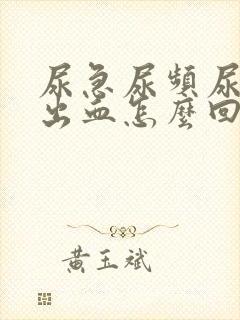 尿急尿頻尿
出血怎麼回
黃玉斌